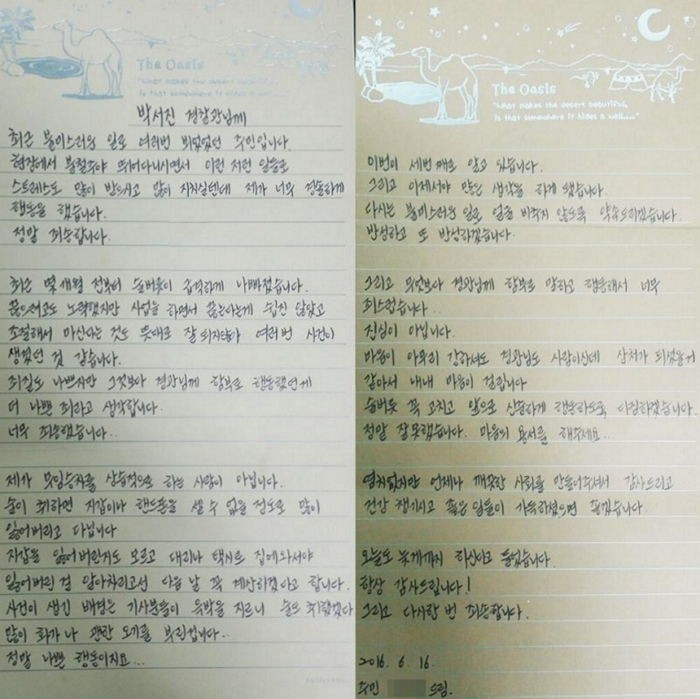 The Oasis
"What makes the desert beautiful,
Is that somewhere it hides a well......"
박서진 경찰관님께
최근 불미스러운 일로 여러번 뵈었었던 주민입니다.
현장에서 불철주야 뛰어다니시면서 이런 저런 일들로
스트레스도 많이 받으시고 많이 지치실텐데 제가 너무 경솔하게
행동을 했습니다.
정말 죄송합니다.
최근 몇개월 전부터 술버릇이 급격하게 나빠졌습니다.
끊으려고도 노력했지만 사업을 하면서 끊는다는게 쉽진 않았고
조절해서 마신다는 것도 뜻대로 잘 되지않아 여러번 사건이
생겼던 것 같습니다.
죄질도 나쁘지만 그것보다 경관님께 함부로 행동했던게
더 나쁜 죄라고 생각합니다.
너무 죄송했습니다...
제가 무임승차를 상습적으로 하는 사람이 아닙니다.
술이 취하면 지갑이나 핸드폰을 셀 수 없을 정도로 많이
잃어버리고 다닙니다
지갑을 잃어버린지도 모르고 대리나 택시로 집에와서야
잃어버린 걸 알아차리고선 다음 날 꼭 계산하겠다고 합니다.
사건이 생긴 배경은 기사분들이 윽박을 지르니 술도 취했겠다
많이 화가나 괜한 오기를 부린겁니다..
정말 나쁜 행동이지요...
The Oasis
"What makes the desert beautiful,
Is that somewhere it hides a well......"
이번이 세번째로 알고 있습니다.
그리고 이제서야 많은 생각을 하게 됐습니다.
다시는 불미스러운 일로 얼굴 비추지 않도록 약속드리겠습니다.
반성하고 또 반성하겠습니다.
그리고 무엇보다 경관님께 함부로 말하고 행동해서 너무
죄스럽습니다..
진심이 아닙니다.
마음이 아무리 강하셔도 경관님도 사람이신데 상처가 되셨을거
같아서 내내 마음이 걸립니다
술버릇 꼭 고치고 앞으로 신중하게 행동하도록 다짐하겠습니다.
정말 잘못했습니다. 마음의 용서를 해주세요..
염치없지만 언제나 깨끗한 사회를 만들어주셔서 감사드리고
건강 챙기시고 좋은 일들이 가득하셨으면 좋겠습니다.
오늘도 늦게까지 하신다고 들었습니다.
항상 감사드립니다!
그리고 다시한 번 죄송합니다.
2016. 6. 16.
주민 드림.